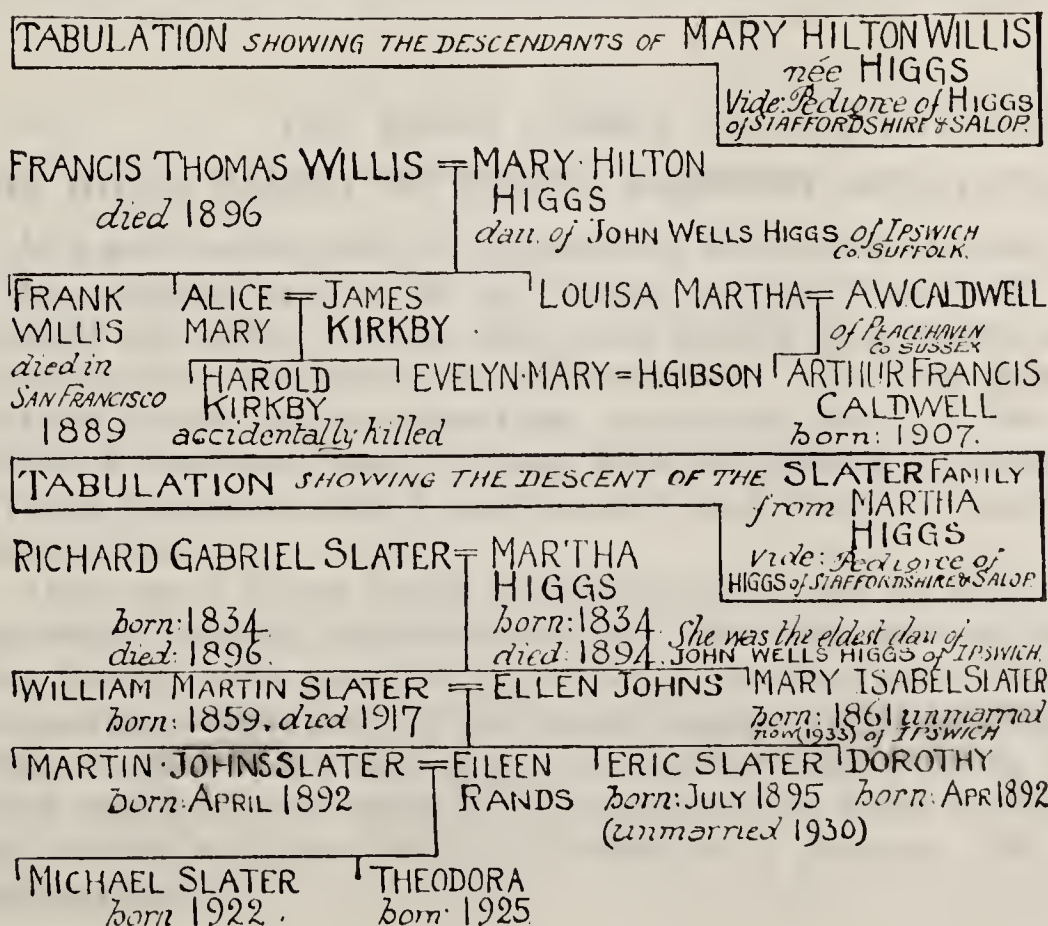 TABULATION SHOWING THE DESCENDANTS OF MARY HILTON WILLIS
née HIGGS
Vide: Pedigree of HIGGS
of STAFFORDSHIRE & SALOP.
FRANCIS THOMAS WILLIS = MARY HILTON
HIGGS
died 1896
dau. of JOHN WELLS HIGGS of IPSWICH
Co. SUFFOLK.
FRANK WILLIS
died in
SAN FRANCISCO
1889
ALICE MARY = JAMES KIRKBY.
LOUISA MARTHA = A.W. CALDWELL
of PEACEHAVEN
Co SUSSEX
HAROLD
KIRKBY
accidentally killed
EVELYN·MARY = H. GIBSON
ARTHUR FRANCIS
CALDWELL
born: 1907.
TABULATION SHOWING THE DESCENT OF THE SLATER FAMILY
from MARTHA
HIGGS
vide: Pedigree of
HIGGS of STAFFORDSHIRE & SALOP.
RICHARD GABRIEL SLATER = MARTHA
HIGGS
born: 1834.
died: 1896.
born: 1834.
died: 1894.
She was the eldest dau of
JOHN WELLS HIGGS of IPSWICH.
WILLIAM MARTIN SLATER = ELLEN JOHNS
born: 1859. died 1917
MARY ISABEL SLATER
born: 1861 unmarried
now (1933) of IPSWICH
MARTIN·JOHNS SLATER = EILEEN
RANDS
born: APRIL 1892
ERIC SLATER
born: JULY 1895
(unmarried 1930)
DOROTHY
born: APR 1892
MICHAEL SLATER
born 1922.
THEODORA
born 1925